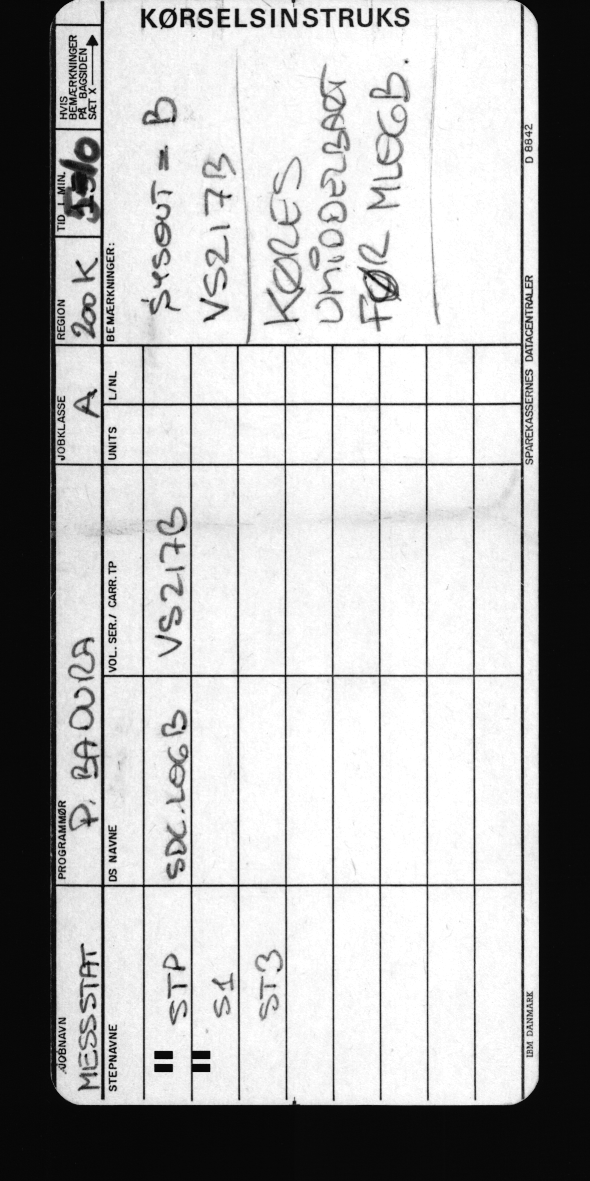 KØRSELSINSTRUKS
JOBNAVN
MESSSTAT
PROGRAMMØR
P. BADURA
JOBKLASSE
A
REGION
200K
TID I MIN.
HVIS
BEMÆRKNINGER
PÅ BAGSIDEN
SÆT X
STEPNAVNE
DS NAVNE
VOL. SER./ CARR.TP
UNITS
L/NL
BEMÆRKNINGER:
STP
SDC.LOGB
VS217B
SYSOUT = B
S1
VS217B
ST3
KØRES
UMIDDELBART
FØR MLOGB.
IBM DANMARK
SPAREKASSERNES DATACENTRALER
D 8842